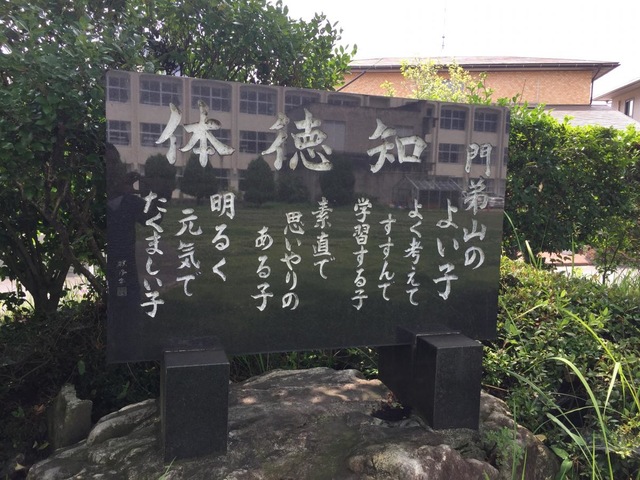 門弟山の
よい子
知
よく考えて
すすんで
学習する子
徳
素直で
思いやりの
ある子
体
明るく
元気で
たくましい子